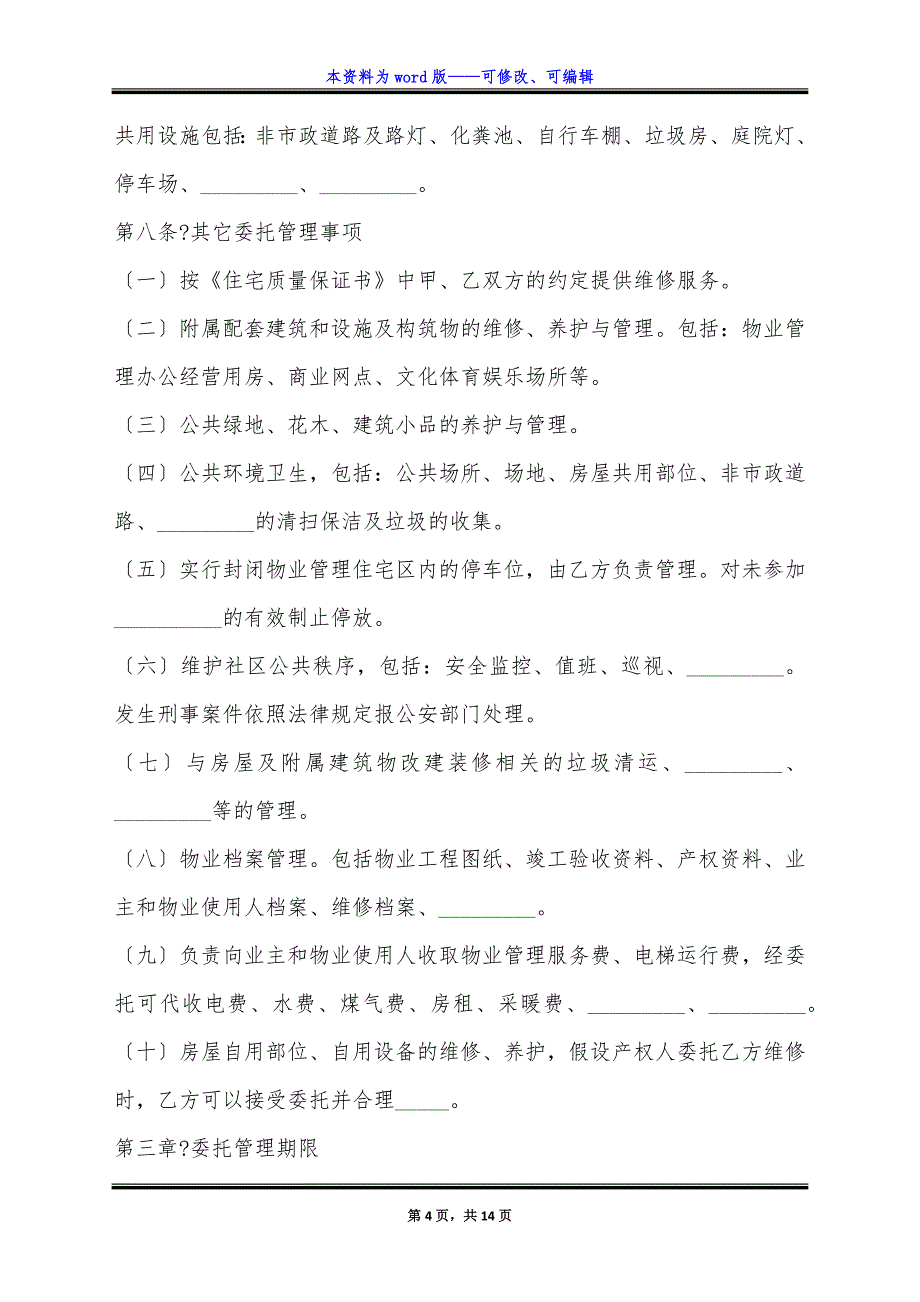 本资料为 word 版——可修改、可编辑
共用设施包括：非市政道路及路灯、化粪池、自行车棚、垃圾房、庭院灯、
停车场、_________、_________。
第八条?其它委托管理事项
〔一〕按《住宅质量保证书》中甲、乙双方的约定提供维修服务。
〔二〕附属配套建筑和设施及构筑物的维修、养护与管理。包括：物业管
理办公经营用房、商业网点、文化体育娱乐场所等。
〔三〕公共绿地、花木、建筑小品的养护与管理。
〔四〕公共环境卫生，包括：公共场所、场地、房屋共用部位、非市政道
路、_________的清扫保洁及垃圾的收集。
〔五〕实行封闭物业管理住宅区内的停车位，由乙方负责管理。对未参加
__________的有效制止停放。
〔六〕维护社区公共秩序，包括：安全监控、值班、巡视、_________。
发生刑事案件依照法律规定报公安部门处理。
〔七〕与房屋及附属建筑物改建装修相关的垃圾清运、_________、
_________等的管理。
〔八〕物业档案管理。包括物业工程图纸、竣工验收资料、产权资料、业
主和物业使用人档案、维修档案、_________。
〔九〕负责向业主和物业使用人收取物业管理服务费、电梯运行费，经委
托可代收电费、水费、煤气费、房租、采暖费、_________、_________。
〔十〕房屋自用部位、自用设备的维修、养护，假设产权人委托乙方维修
时，乙方可以接受委托并合理_____。
第三章?委托管理期限
第 4 页，共 14 页